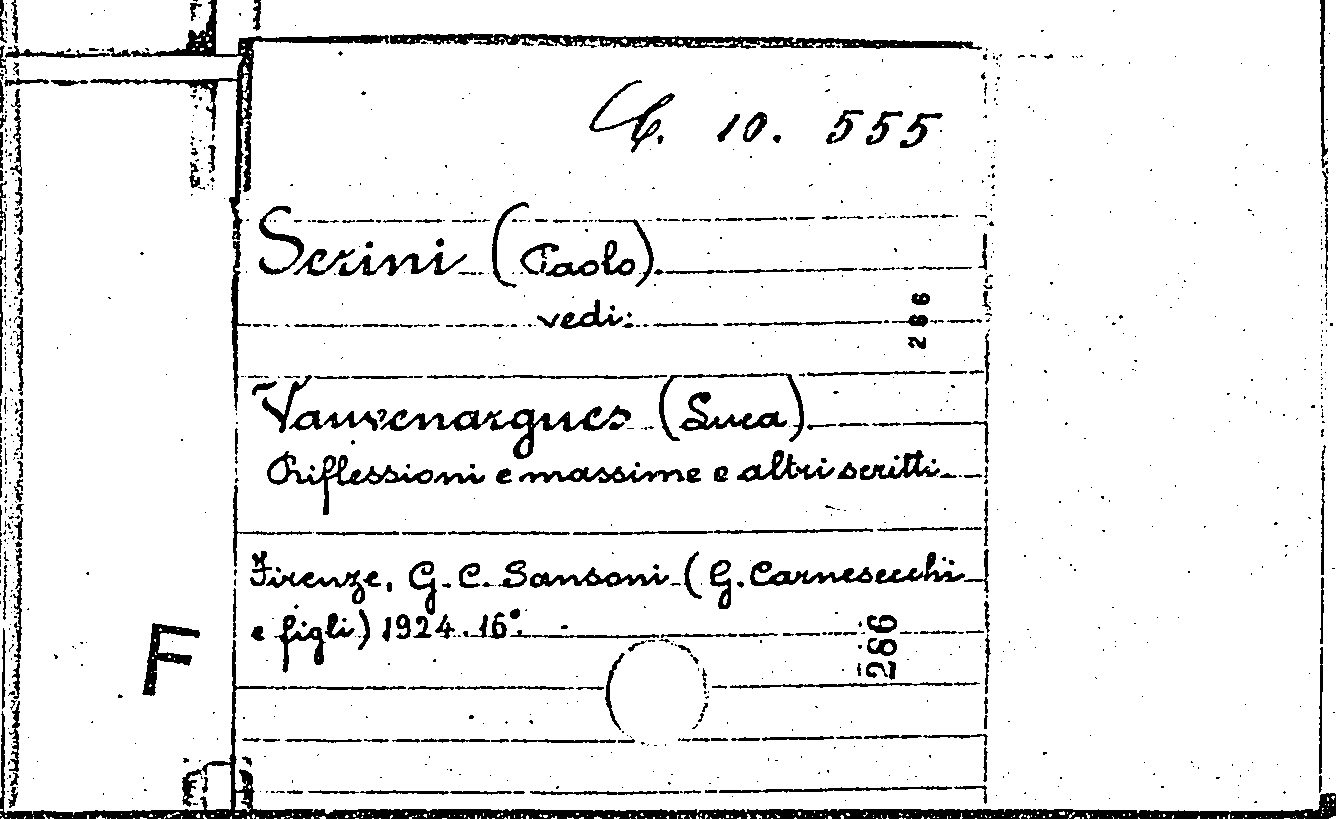 C. 10. 555
Serini (Paolo).
vedi:
266
Vauvenargues (Luca).
Riflessioni e massime e altri scritti.
Firenze, G. C. Sansoni (G. Carnesecchi
e figli) 1924. 16°.
266
F